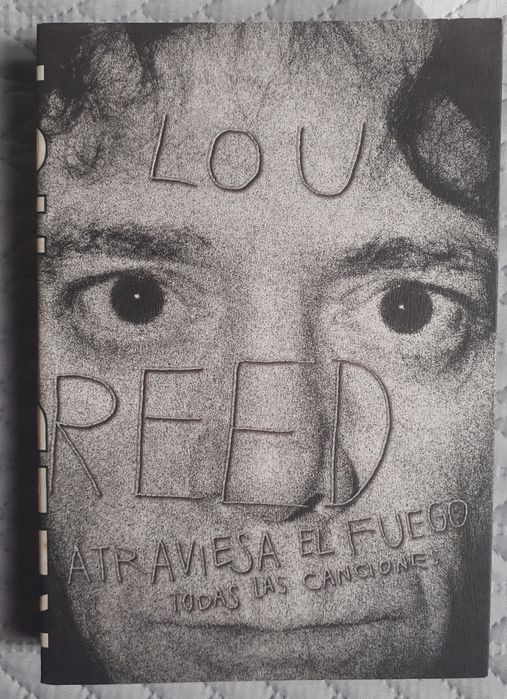 LOU
REED
ATRAVIESA EL FUEGO
TODAS LAS CANCIONES